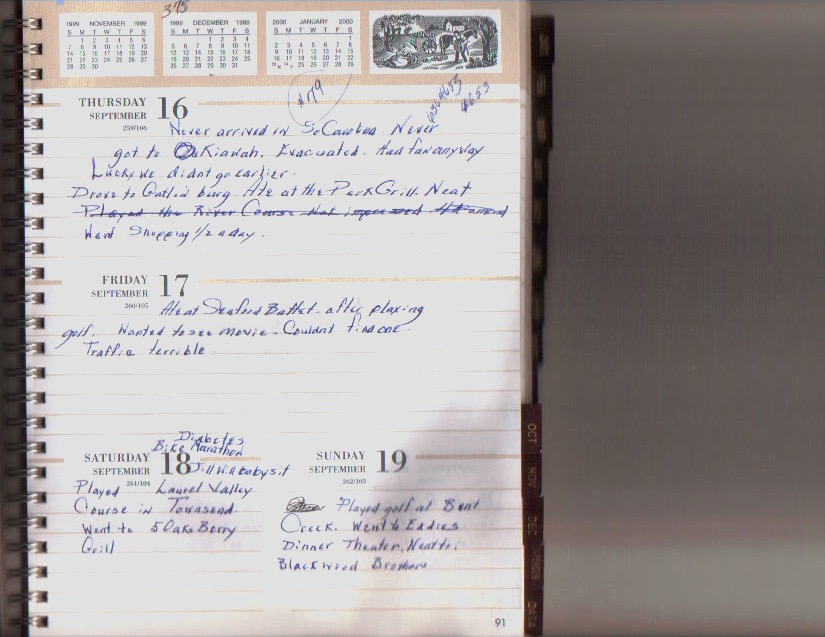 375
1999 NOVEMBER 1999
S M T W T F S
1 2 3 4 5 6
7 8 9 10 11 12 13
14 15 16 17 18 19 20
21 22 23 24 25 26 27
28 29 30
1999 DECEMBER 1999
S M T W T F S
1 2 3 4
5 6 7 8 9 10 11
12 13 14 15 16 17 18
19 20 21 22 23 24 25
26 27 28 29 30 31
2000 JANUARY 2000
S M T W T F S
1
2 3 4 5 6 7 8
9 10 11 12 13 14 15
16 17 18 19 20 21 22
23 24 25 26 27 28 29
30 31
#179
THURSDAY 16
SEPTEMBER
259/106
Never arrived in So Carolina. Never
got to Kiawah. Evacuated. Had fun anyway
Lucky we didnt go earlier.
Drove to Gatlinburg Ate at the Park Grill. Neat
Played the River Course Not impressed
Went Shopping 1/2 a day.
FRIDAY 17
SEPTEMBER
260/105
Ate at Seafood Buffet after playing
golf. Wanted to see movie - Couldnt find one.
Traffic terrible
Diabetes
Bike Marathon
SATURDAY 18
SEPTEMBER
261/104
Jill Will babysit
Played Laurel Valley
Course in Townsend
Went to 5 Oaks Berry
Grill
SUNDAY 19
SEPTEMBER
262/103
Played golf at Bent
Creek. Went to Eddies
Dinner Theater.
Blackwood Brothers
OCT
NOV
DEC
DATA
91